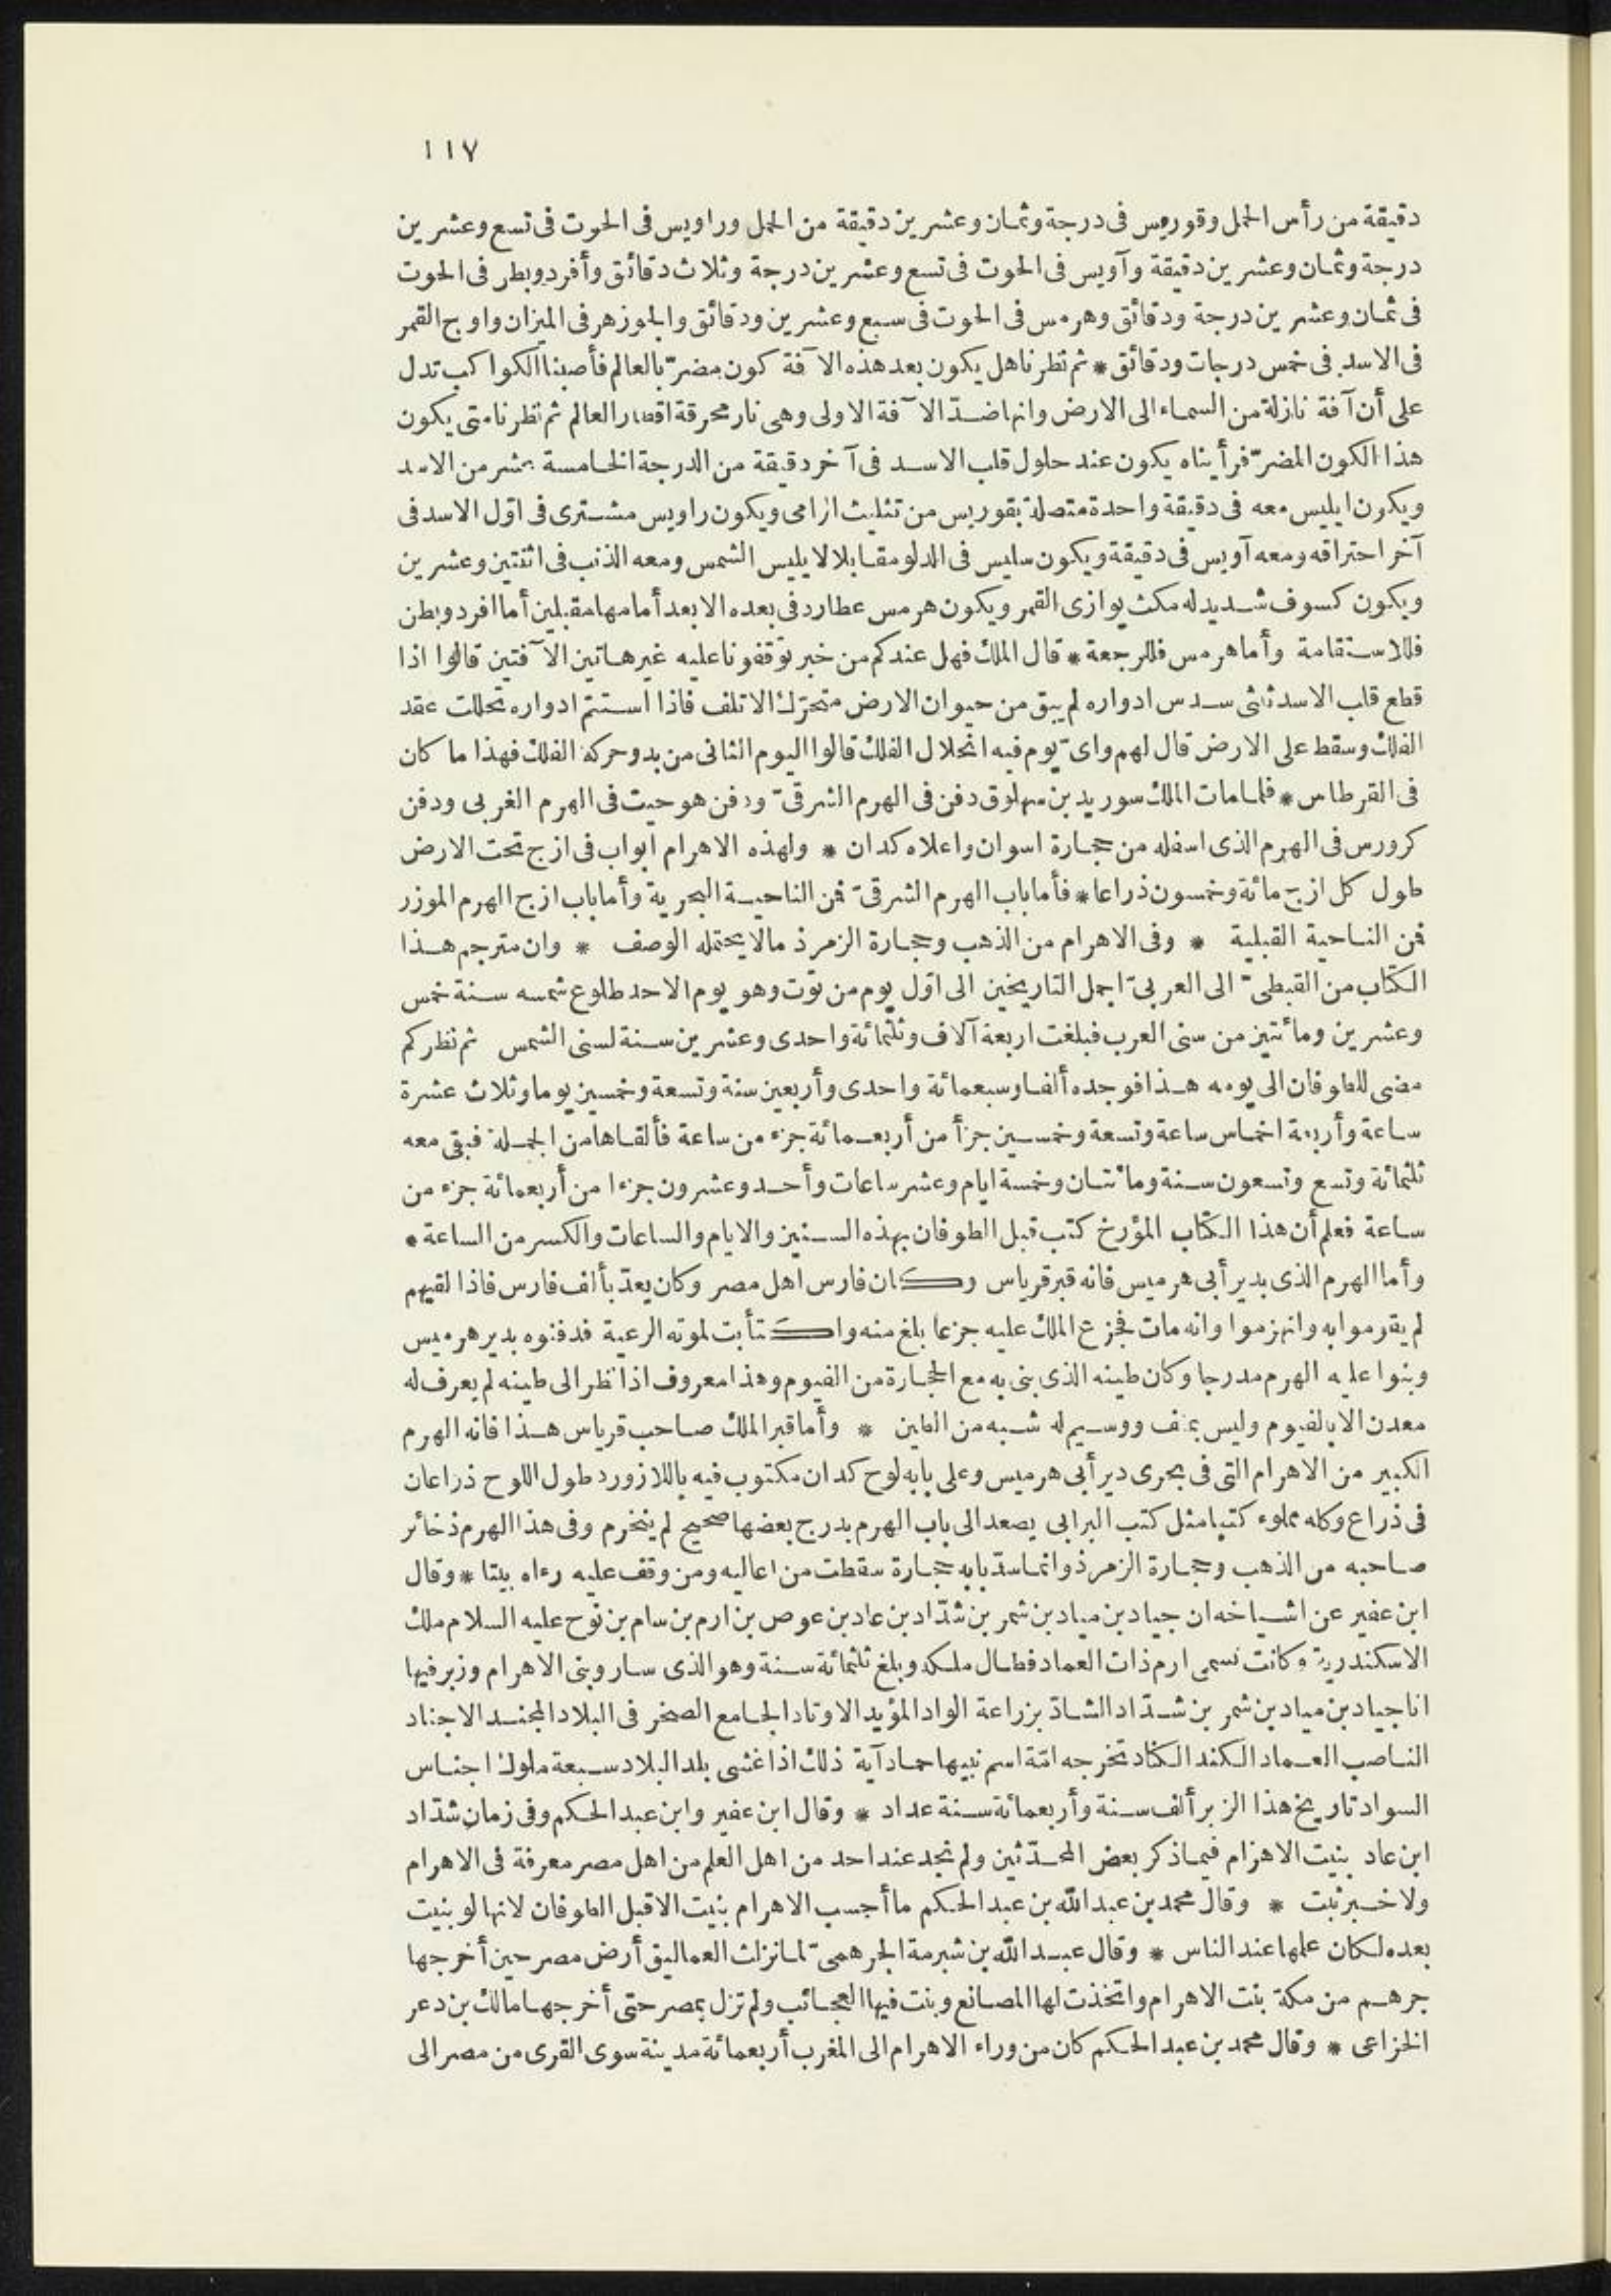 ١١٧
دقيقة من رأس الحمل وقوريس فى درجة وثمان وعشرين دقيقة من الحمل وراويس فى الحوت فى تسع وعشرين
درجة وثمان وعشرين دقيقة وآويس فى الحوت فى تسع وعشرين درجة وثلاث دقائق وأفردوبطر فى الحوت
فى ثمان وعشرين درجة ودقائق وهرمس فى الحوت فى سبع وعشرين ودقائق والجوزهر فى الميزان واوج القمر
فى الاسد فى خمس درجات ودقائق * ثم نظرنا هل يكون بعد هذه الآفة كون مضرّ بالعالم فأصبنا الكواكب تدل
على أن آفة نازلة من السماء الى الارض وانها ضدّ الآفة الاولى وهى نار محرقة اقطار العالم ثم نظرنا متى يكون
هذا الكون المضرّ فرأيناه يكون عند حلول قلب الاسد فى آخر دقيقة من الدرجة الخامسة عشر من الاسد
ويكون ايليس معه فى دقيقة واحدة متصلة بقوريس من تثليث الرامى ويكون راويس مشترى فى اوّل الاسد فى
آخر احتراقه ومعه آويس فى دقيقة ويكون سليس فى الدلو مقابلا لايليس الشمس ومعه الذنب فى اثنتين وعشرين
ويكون كسوف شديد له مكث يوازى القمر ويكون هرمس عطارد فى بعده الابعد أمامها مقبلين أما افردوبطن
فللاستقامة وأما هرمس فللرجعة * قال الملك فهل عندكم من خبر توقفونا عليه غير هاتين الآفتين قالوا اذا
قطع قلب الاسد ثلثى سدس ادواره لم يبق من حيوان الارض متحرّك الا تلف فاذا استتمّ ادواره تحللت عقد
الفلك وسقط على الارض قال لهم واىّ يوم فيه انحلال الفلك قالوا اليوم الثانى من بدو حركة الفلك فهذا ما كان
فى القرطاس * فلما مات الملك سوريد بن سهلوق دفن فى الهرم الشرقىّ ودفن هوجيت فى الهرم الغربى ودفن
كرورس فى الهرم الذى اسفله من حجارة اسوان واعلاه كدان * ولهذه الاهرام ابواب فى ازج تحت الارض
طول كل ازج مائة وخمسون ذراعا * فأما باب الهرم الشرقىّ فمن الناحية البحرية وأما باب ازج الهرم الموزر
فمن الناحية القبلية * وفى الاهرام من الذهب وحجارة الزمرذ مالا يحتمله الوصف * وان مترجم هذا
الكتاب من القبطىّ الى العربىّ اجمل التاريخين الى اوّل يوم من توت وهو يوم الاحد طلوع شمسه سنة خمس
وعشرين ومائتين من سنى العرب فبلغت اربعة آلاف وثلثمائة واحدى وعشرين سنة لسنى الشمس ثم نظر كم
مضى للطوفان الى يومه هذا فوجده ألفا وسبعمائة واحدى وأربعين سنة وتسعة وخمسين يوما وثلاث عشرة
ساعة وأربعة اخماس ساعة وتسعة وخمسين جزأ من أربعمائة جزء من ساعة فألقاها من الجملة فبقى معه
ثلثمائة وتسع وتسعون سنة ومائتان وخمسة ايام وعشر ساعات وأحد وعشرون جزءا من أربعمائة جزء من
ساعة فعلم أن هذا الكتاب المؤرخ كتب قبل الطوفان بهذه السنين والايام والساعات والكسر من الساعة *
وأما الهرم الذى بدير أبى هرميس فانه قبر قرياس وكان فارس اهل مصر وكان يعدّ بألف فارس فاذا لقيهم
لم يقوموا به وانهزموا وانه مات فجزع الملك عليه جزعا بلغ منه واكتأبت لموته الرعية فدفنوه بدير هرميس
وبنوا عليه الهرم مدرجا وكان طينه الذى بنى به مع الحجارة من الفيوم وهذا معروف اذا نظر الى طينه لم يعرف له
معدن الا بالفيوم وليس بمنف ووسيم له شبه من الطين * وأما قبر الملك صاحب قرياس هذا فانه الهرم
الكبير من الاهرام التى فى بحرى دير أبى هرميس وعلى بابه لوح كدان مكتوب فيه باللازورد طول اللوح ذراعان
فى ذراع وكله مملوء كتبا مثل كتب البرابى يصعد الى باب الهرم بدرج بعضها صحيح لم ينخرم وفى هذا الهرم ذخائر
صاحبه من الذهب وحجارة الزمرذ وانما سدّ بابه حجارة سقطت من اعاليه ومن وقف عليه رءاه بينا * وقال
ابن عفير عن اشياخه ان جياد بن مياد بن شمر بن شدّاد بن عاد بن عوص بن ارم بن سام بن نوح عليه السلام ملك
الاسكندرية وكانت تسمى ارم ذات العماد فطال ملكه وبلغ ثلثمائة سنة وهو الذى سار وبنى الاهرام وزبر فيها
انا جياد بن مياد بن شمر بن شدّاد الشادّ بزراعة الواد المؤيد الاوتاد الجامع الصخر فى البلاد المجند الاجناد
الناصب العماد الكند الكاد تخرجه امّة اسم نبيها حماد آية ذلك اذا غشى بلد البلاد سبعة ملوك اجناس
السواد تاريخ هذا الزبر ألف سنة وأربعمائة سنة عداد * وقال ابن عفير وابن عبد الحكم وفى زمان شدّاد
ابن عاد بنيت الاهرام فيما ذكر بعض المحدّثين ولم نجد عند احد من اهل العلم من اهل مصر معرفة فى الاهرام
ولا خبر ثبت * وقال محمد بن عبد الله بن عبد الحكم ما أحسب الاهرام بنيت الا قبل الطوفان لانها لو بنيت
بعده لكان علمها عند الناس * وقال عبد الله بن شبرمة الجرهمىّ لما نزلت العماليق أرض مصر حين أخرجها
جرهم من مكة بنت الاهرام واتخذت لها المصانع وبنت فيها العجائب ولم تزل بمصر حتى أخرجها مالك بن دعر
الخزاعى * وقال محمد بن عبد الحكم كان من وراء الاهرام الى المغرب أربعمائة مدينة سوى القرى من مصر الى